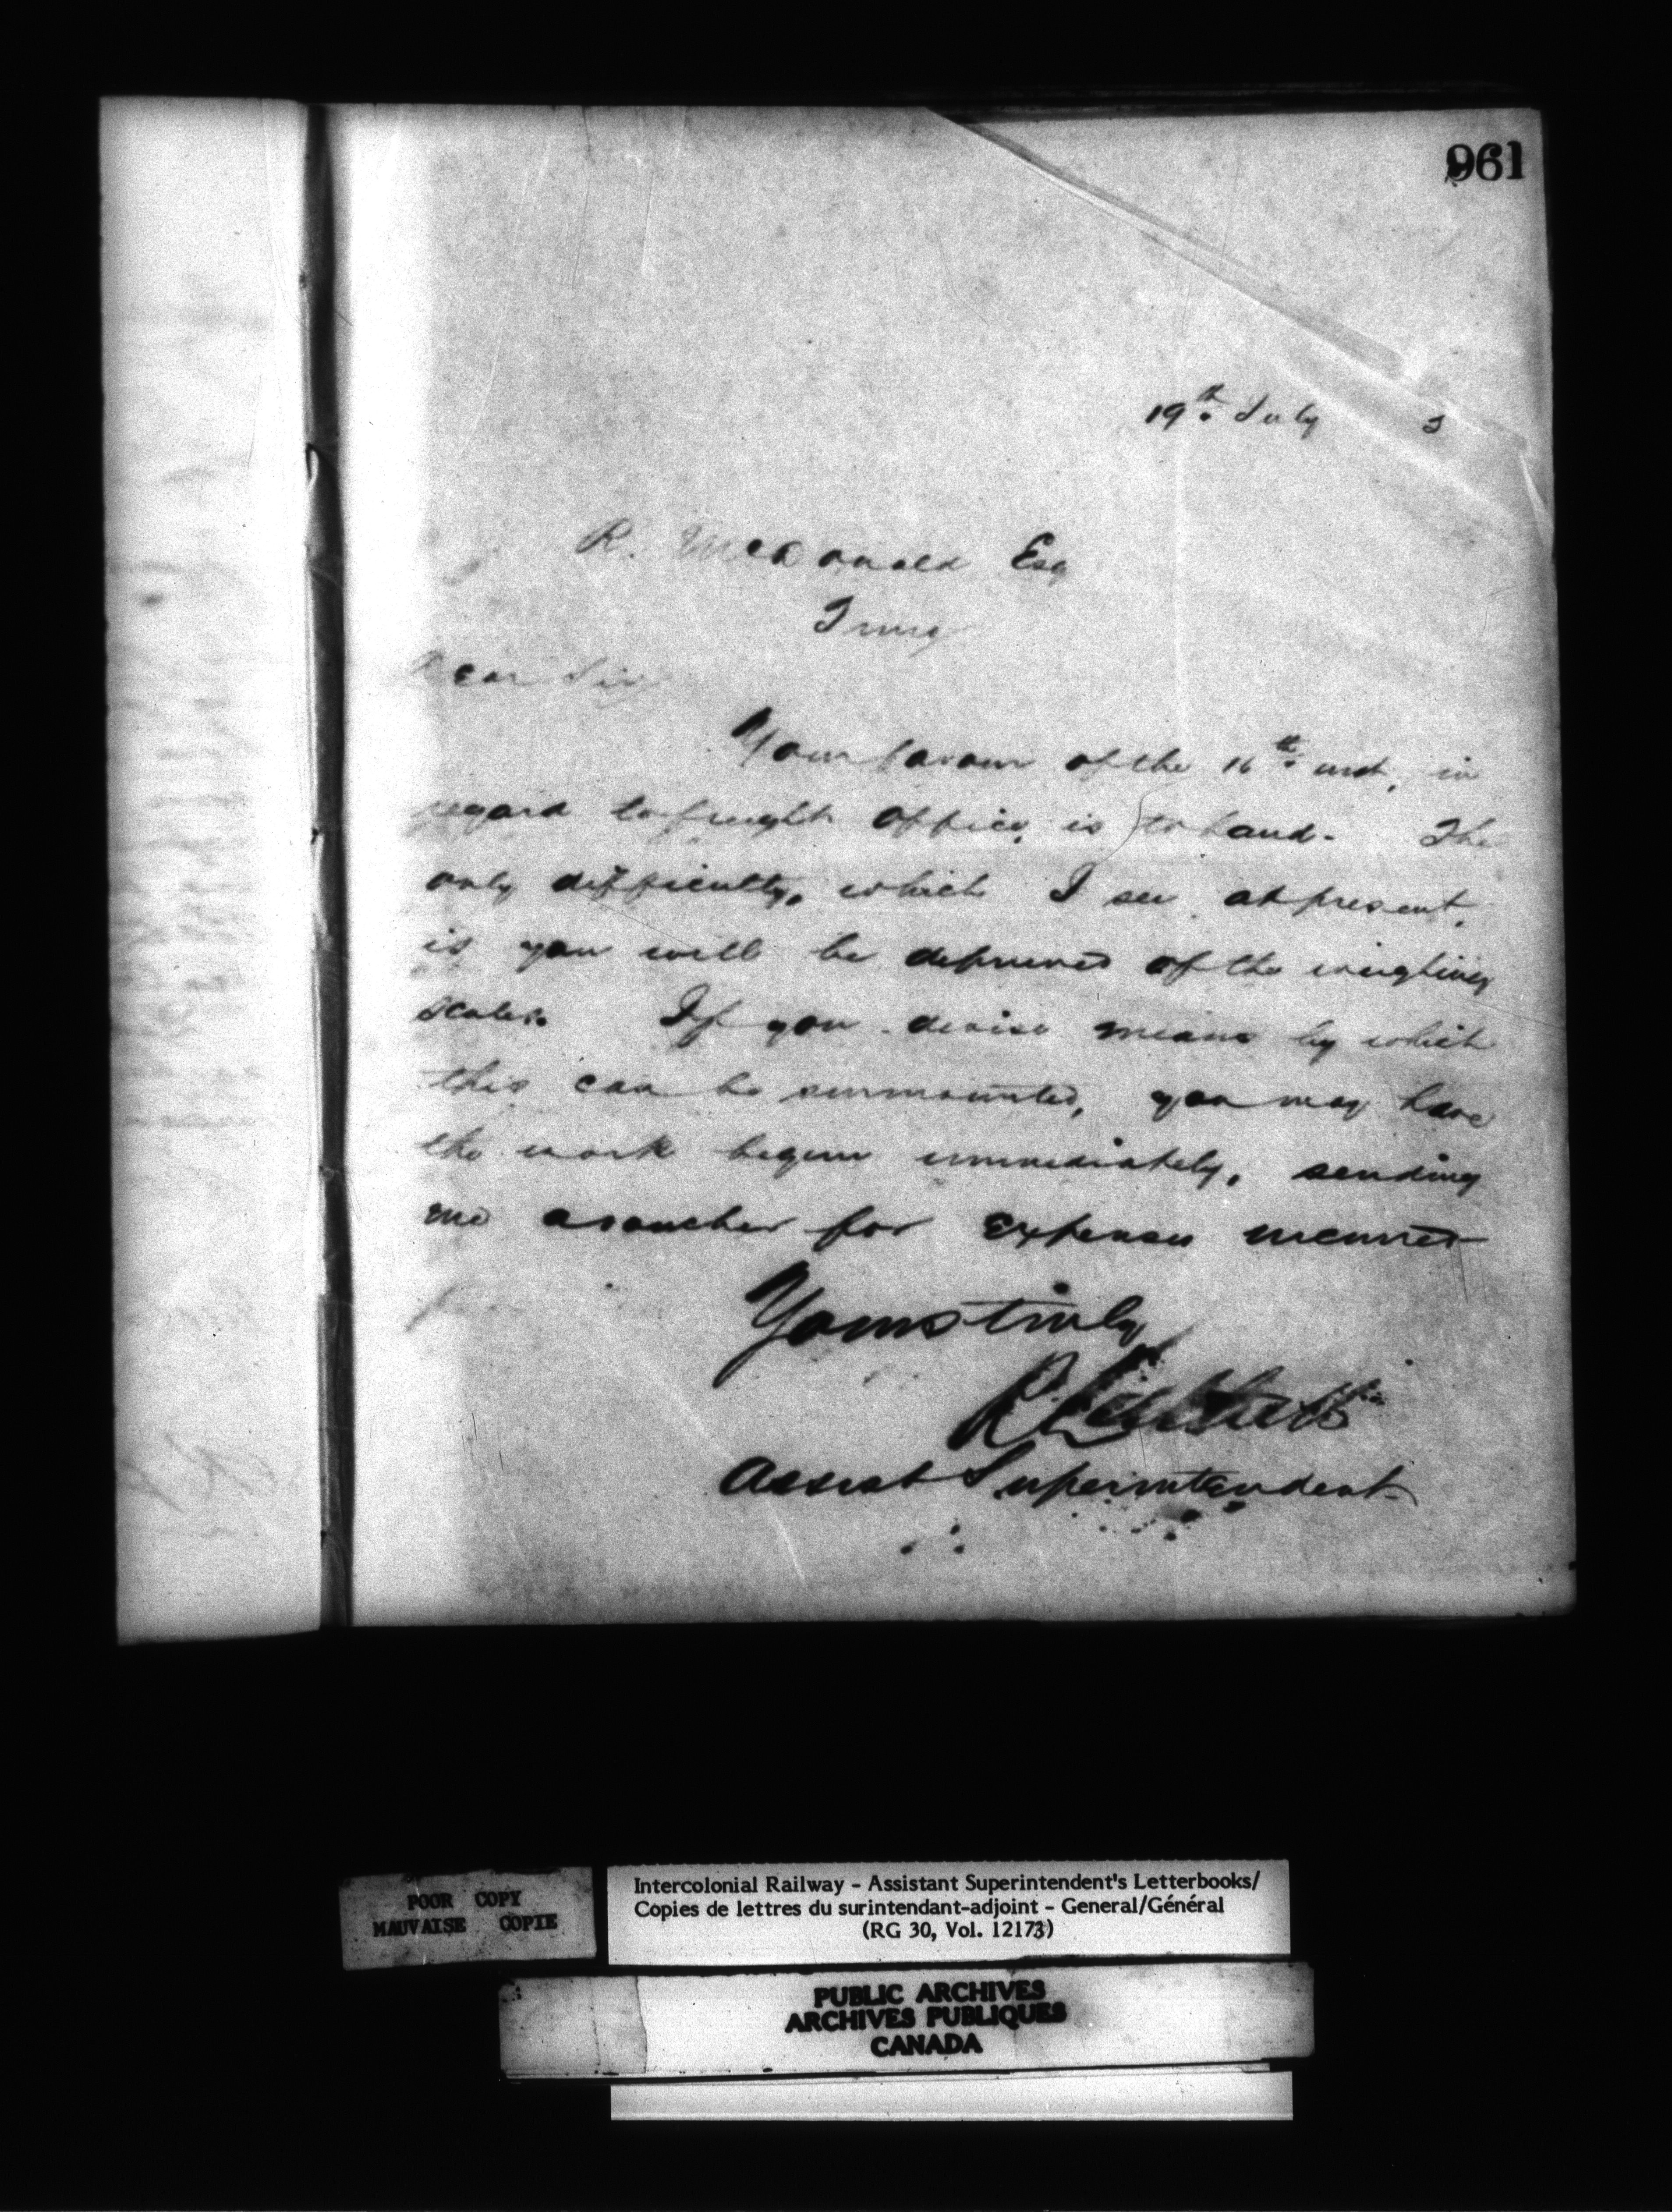 961
19th. July 3
R. McDonald Esq
Dear Sir
Your favour of the 16th. inst, in
regard to freight Office, is to hand. The
only difficulty, which I see at present,
is you will be deprived of the weighing
scales. If you devise means by which
this can be surmounted, you may have
the work begun immediately, sending
me a voucher for expenses incurred
Yours truly
R. Luttrell
Assist Superintendent
POOR COPY
MAUVAISE COPIE
Intercolonial Railway - Assistant Superintendent's Letterbooks/
Copies de lettres du surintendant-adjoint - General/Général
(RG 30, Vol. 12173)
PUBLIC ARCHIVES
ARCHIVES PUBLIQUES
CANADA